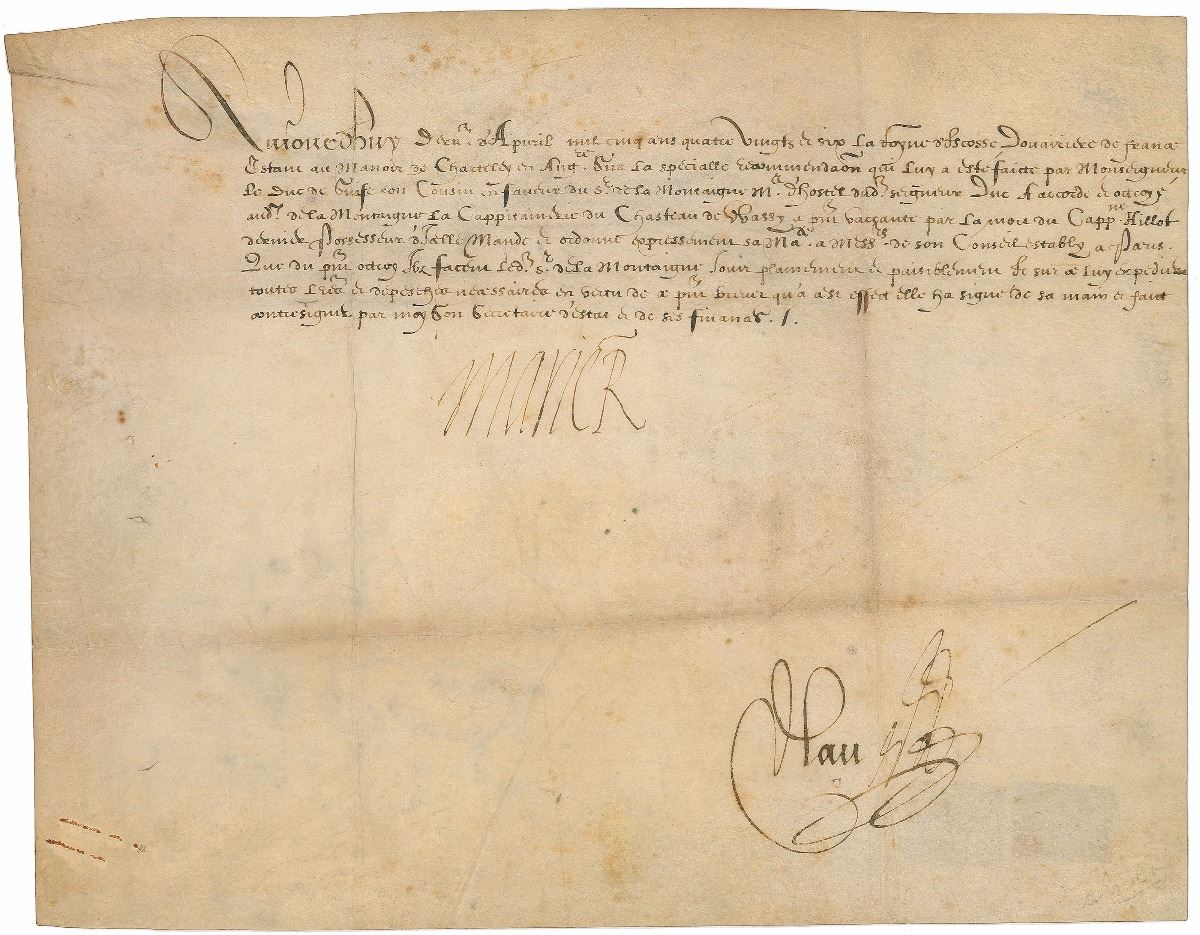 Aujourdhuy dern.r d'Apvril mil cinq cens quatre vingts et six La Royne d'Escosse Douairiere de france
Estant au Manoir de Chartcley en Ang.re Sur La specialle recommendaon qui Luy a esté faicte par Monseigneur
Le Duc de Guise son Cousin en faveur du S.r de la Montaigne M.e d'hostel dud.t seigneur Duc A accordé et octroyé
aud.t de la Montaigne La Cappitainerie du Chasteau de Wassy a pnt vaccante par la mort du Capp.ne Hillot
dernier Possesseur d'Icelle Mande et ordonne expressement sa Ma.té a Mess.rs de son Conseil estably a Paris.
Que du pnt octroy Ilz facent led.t S.r de la Montaigne Jouir plainement et paisiblement Et sur ce Luy expedient
toutes Lres et depesches necessaires en vertu de ce pnt brevet qu'a cest effect elle ha signé de sa main et faict
contresigner par moy Son Secretaire d'estat et de ses finances. /.
Marie R
Nau